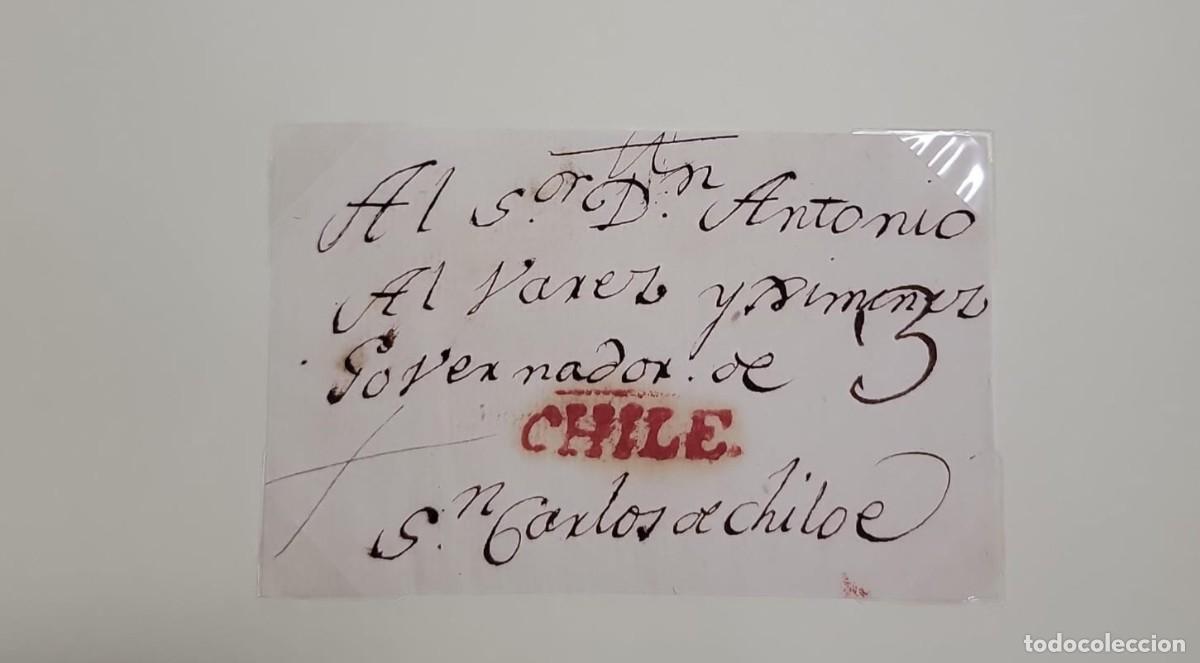 Al S.or D.n Antonio
Alvarez y Ximenez
Governador. de 3
CHILE.
S.n Carlos de chiloe
todocoleccion